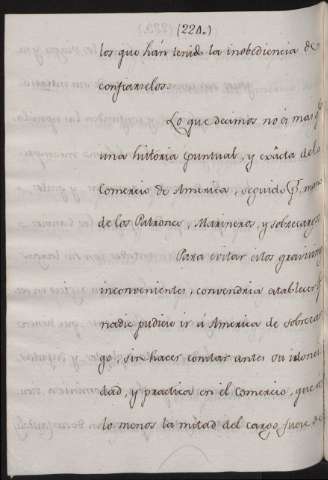 (224.)
los que hán tenido la inobediencia de
confiarselos.
Lo que decimos no es mas q.e
una historia puntual, y exácta del
Comercio de America, seguido p.r mano
de los Patrones, Marineros, y sobrecargos
Para evitar estos gravisimos
inconvenientes, convendria establecer q.e
nadie pudiese ir á America de sobrecar
go, sin hacer constar antes su idonei
dad, y practica en el comercio, que á
lo menos la mitad del cargo fuese de